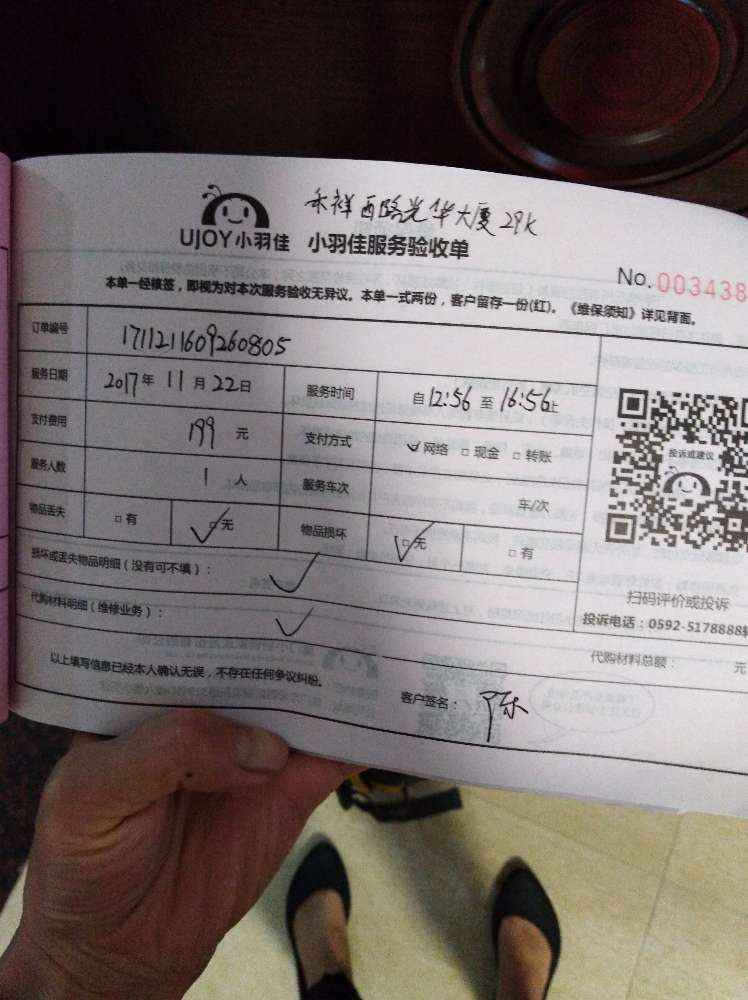 禾祥西路光华大厦29K
UJOY小羽佳 小羽佳服务验收单
No. 003438
本单一经核签，即视为对本次服务验收无异议。本单一式两份，客户留存一份(红)。《维保须知》详见背面。
订单编号 1711211609260805
服务日期 2017年 11月 22日 服务时间 自12:56 至 16:56止
支付费用 199 元 支付方式 ☑网络 □现金 □转账
服务人数 1 人 服务车次 车/次
物品丢失 □有 ☑无 物品损坏 ☑无 □有
投诉或建议
损坏或丢失物品明细（没有可不填）： ✓
扫码评价或投诉
代购材料明细（维修业务）： ✓
投诉电话：0592-5178888转
代购材料总额： 元
以上填写信息已经本人确认无误，不存在任何争议纠纷。
客户签名： 陈